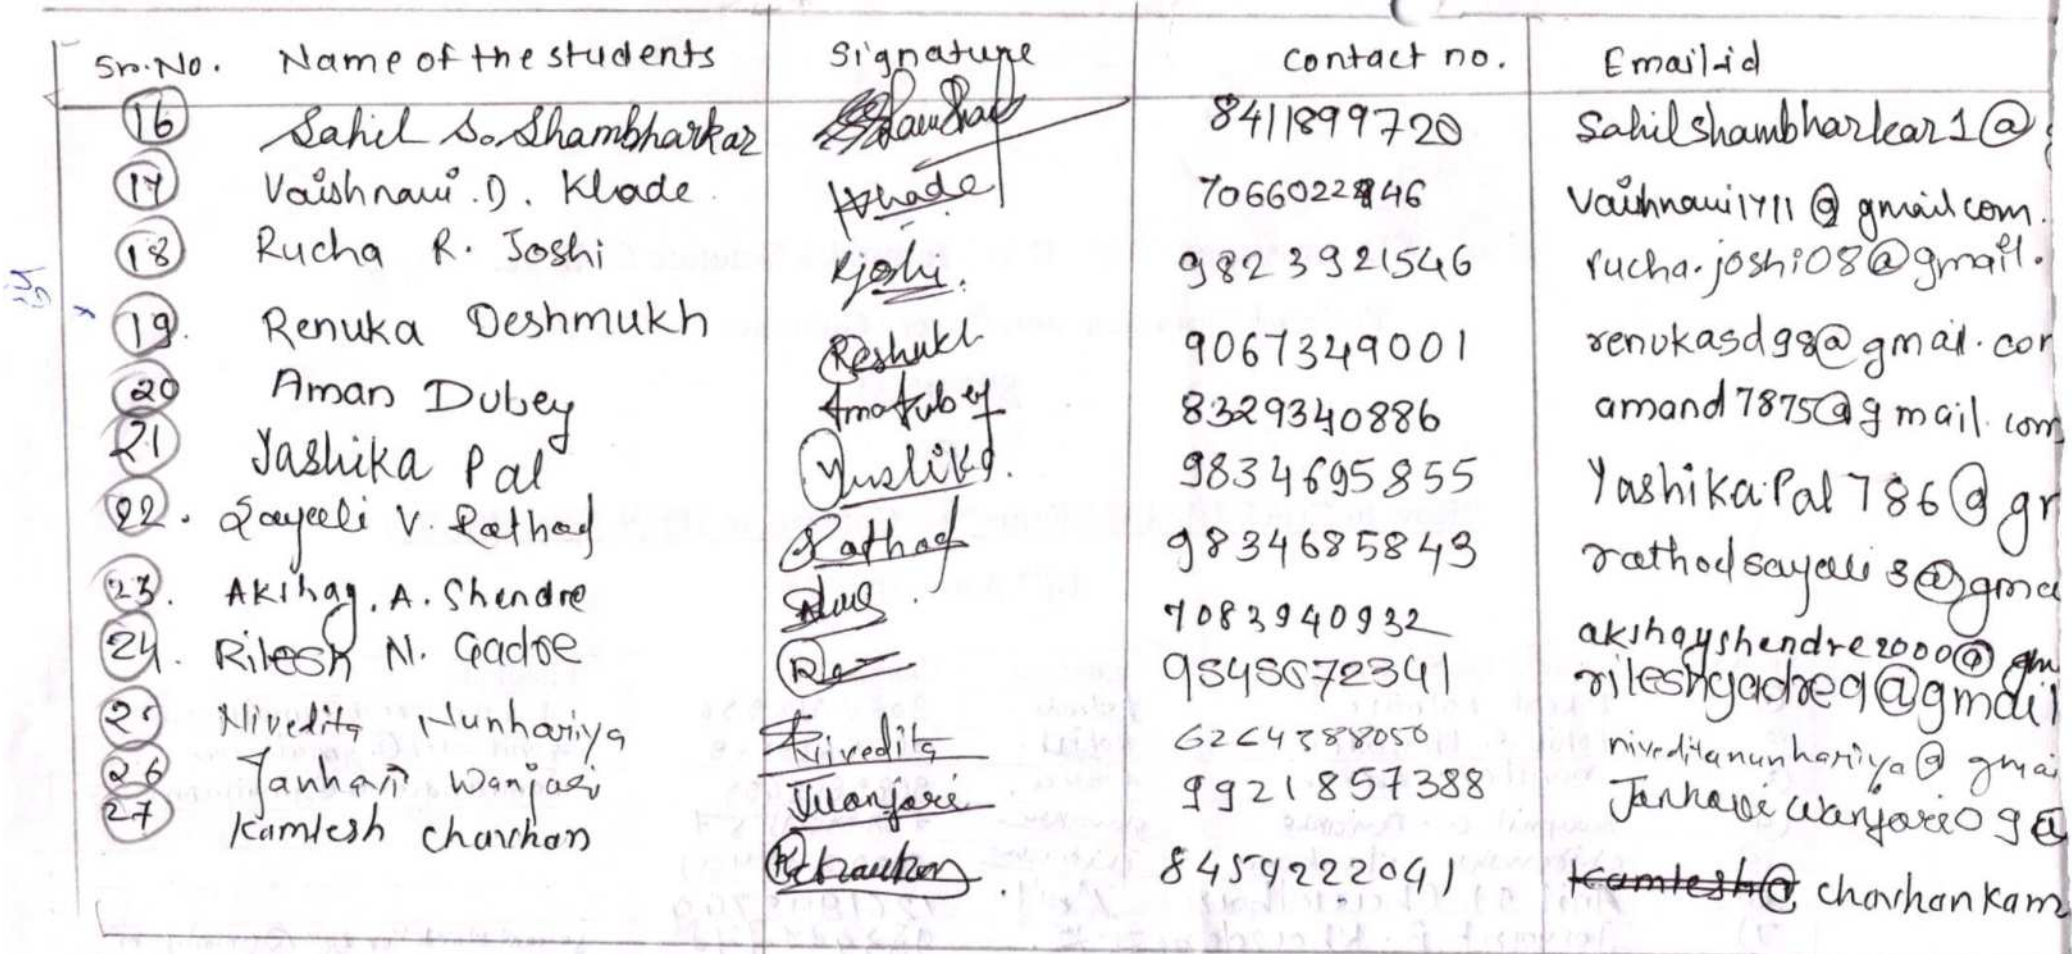 Sr.No. Name of the students Signature Contact no. Email-id
16 Sahil S. Shambharkar 8411899720 Sahilshambharkar1@
17 Vaishnavi .D. Khade. Khade 7066022846 Vaishnavi1711@gmail.com.
18 Rucha R. Joshi Rjoshi. 9823921546 rucha.joshi08@gmail.
19. Renuka Deshmukh 9067349001 renukasd98@gmail.com
20 Aman Dubey 8329340886 amand7875@gmail.com
21 Yashika Pal Yashika. 9834695855 YashikaPal786@g
22. Sayali V. Rathod Rathod 9834685843 rathodsayali3@gma
23. Akshay. A. Shendre 7083940932 akshayshendre2000@gm
24. Ritesh N. Gadre 9545072341 riteshgadre9@gmail
Nivedita Nunhariya Nivedita 6264388050 niveditanunhariya@gmai
26 Janhavi Wanjari JWanjari 9921857388 Janhaviwanjari09@
27 Kamlesh Chavhan KChavhan. 8459222041 Kamlesh@ chavhankam